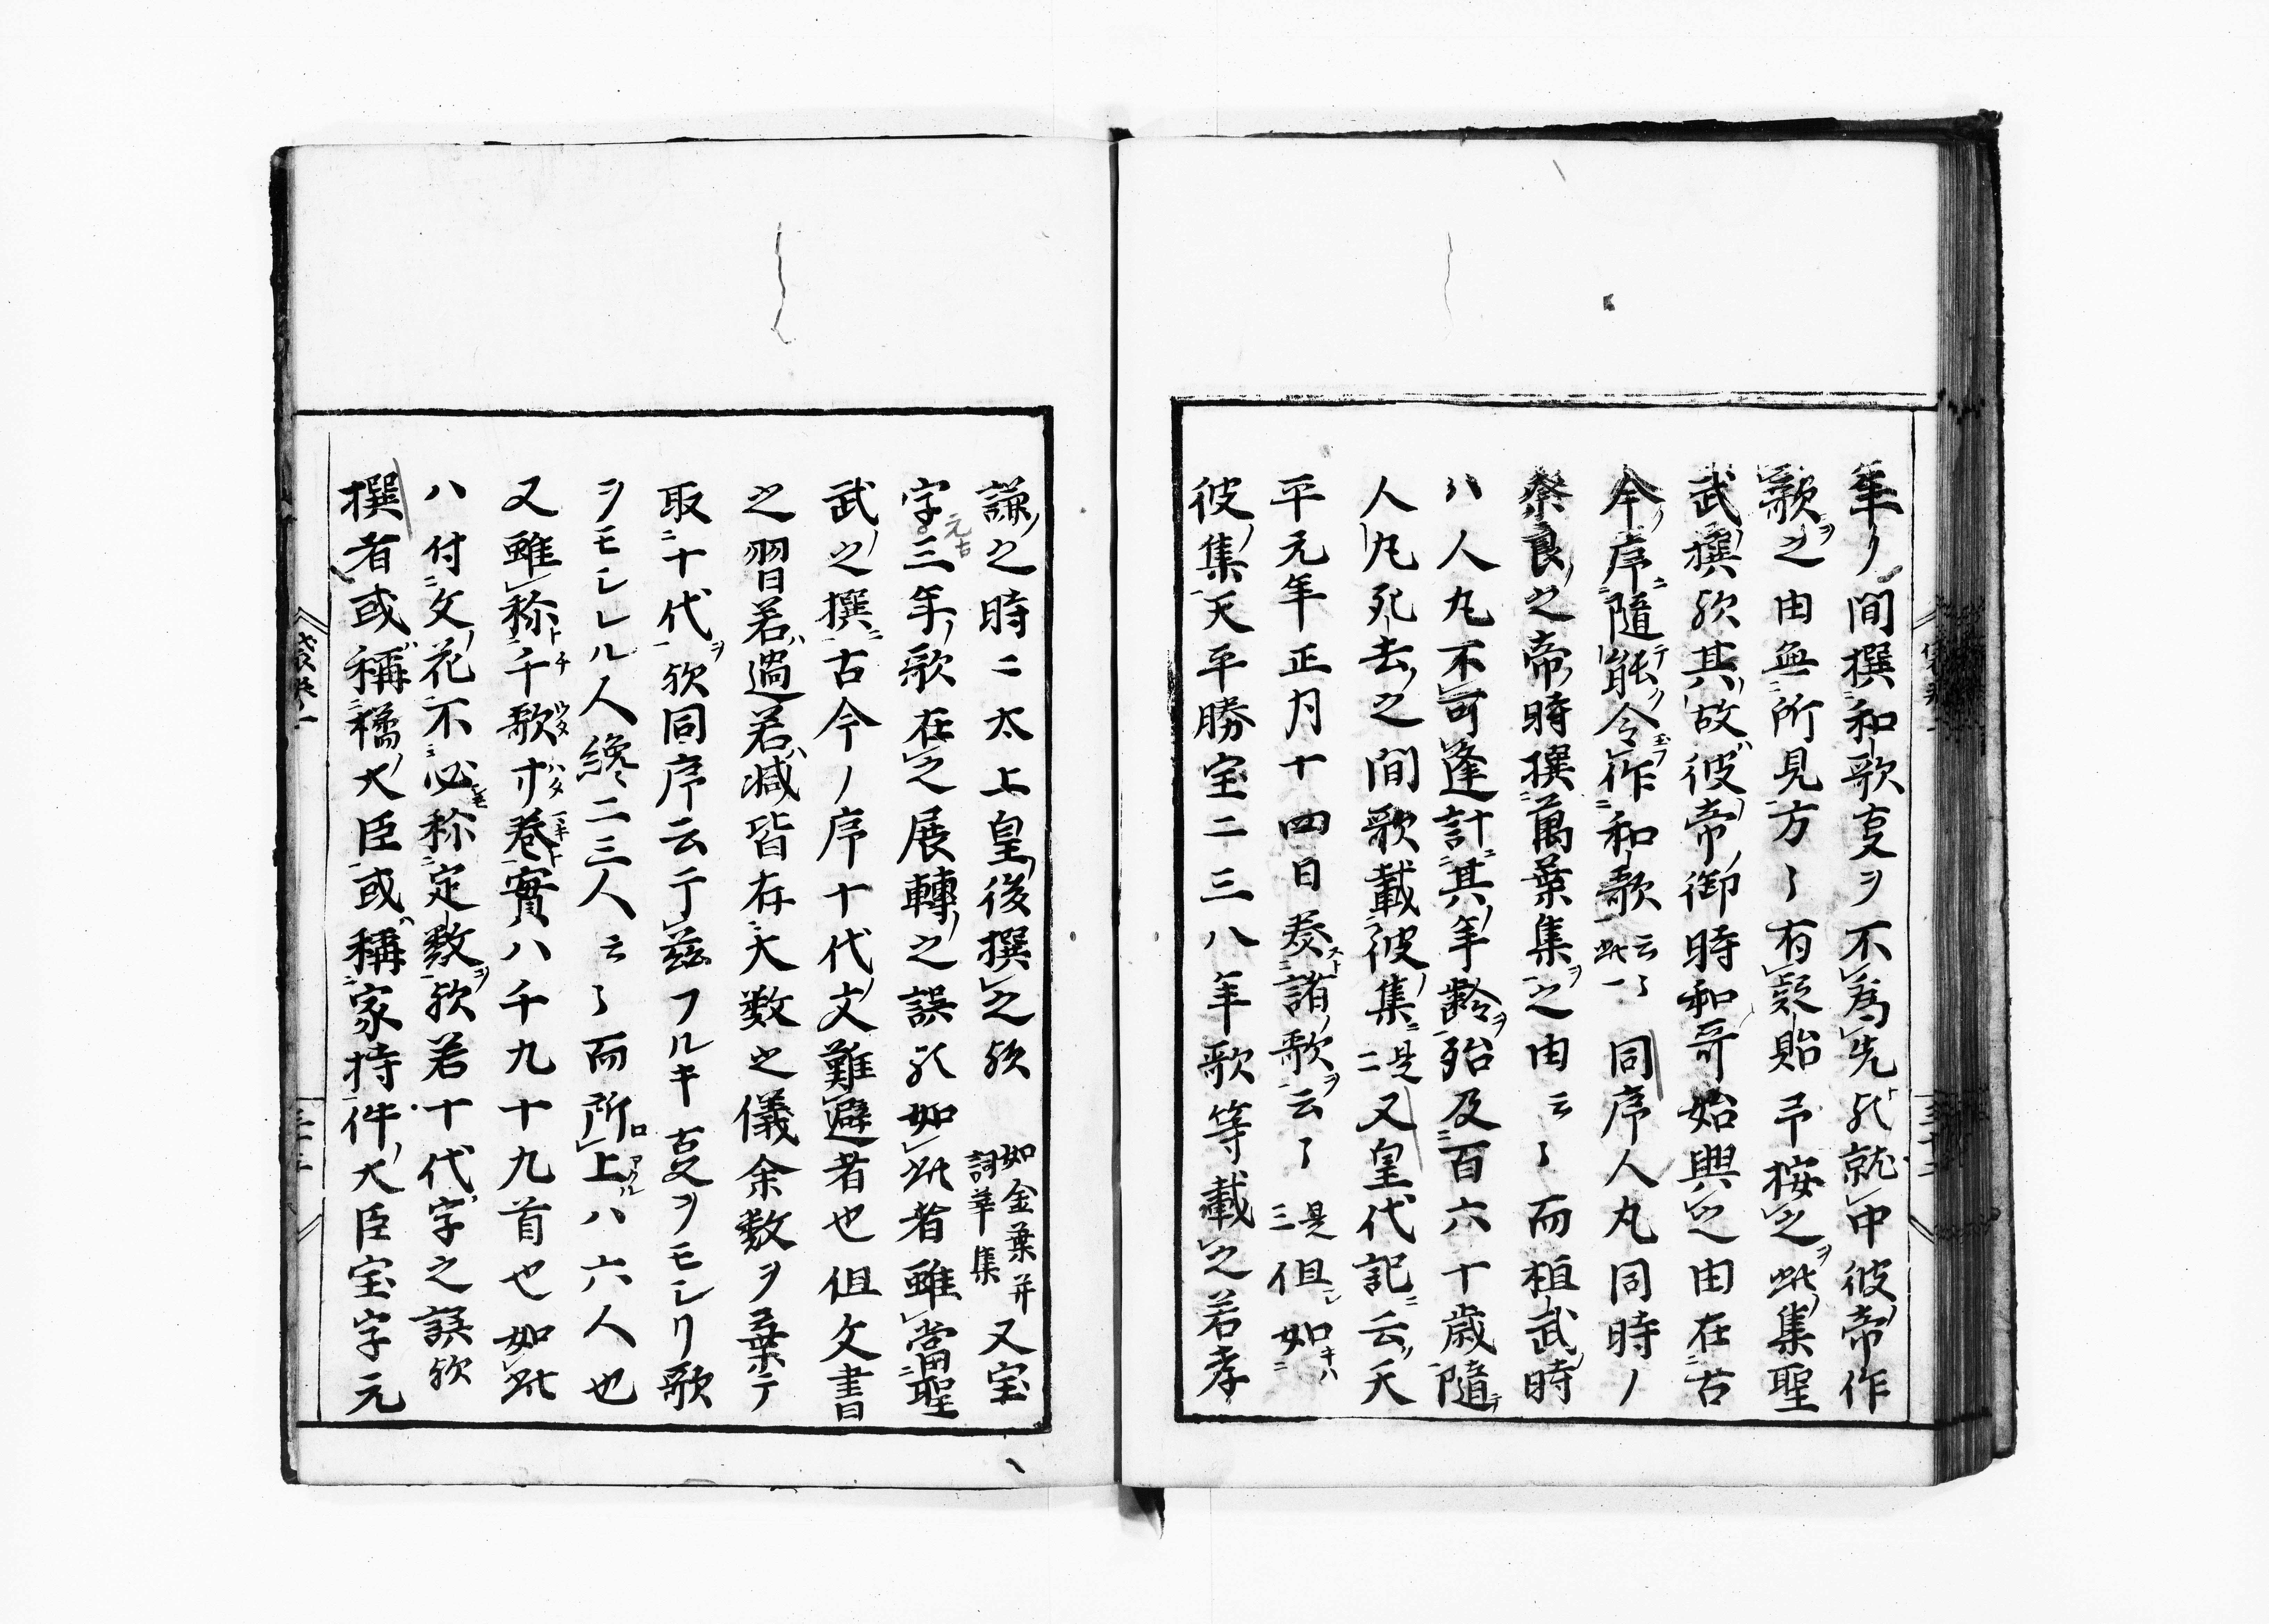 年ノ間撰和歌叓ヲ不為先就中彼帝作
歌之由無所見方〻有疑貽予按之此集聖
武撰欤其故彼帝御時和哥始興之由在古
今序隨能令作和歌云〻此一同序人丸同時ノ
奈良之帝時撰萬葉集之由云〻而桓武時
ハ人丸不可逢計其年齡殆及百六十歳隨
人丸死去之間歌載彼集是二又皇代記云天
平元年正月十四日奏諸歌云〻是三但如
彼集天平勝宝二三八年歌等載之若孝
謙之時ニ太上皇後撰之欤如金葉并詞華集又宝
字三年歌在之展轉之誤如此者雖當聖
武之撰古今ノ序十代文難避者也但文書
之習若過若减皆存大数之儀余数ヲ棄テ
取十代欤同序云于茲フルキ叓ヲモシリ歌
ヲモシレル人纔二三人云〻而所上ハ六人也
又雖称千歌廿巻實八千九十九首也如此
ハ付文花不必称定数欤若十代字之誤欤
撰者或稱橘大臣或稱家持件大臣宝字元